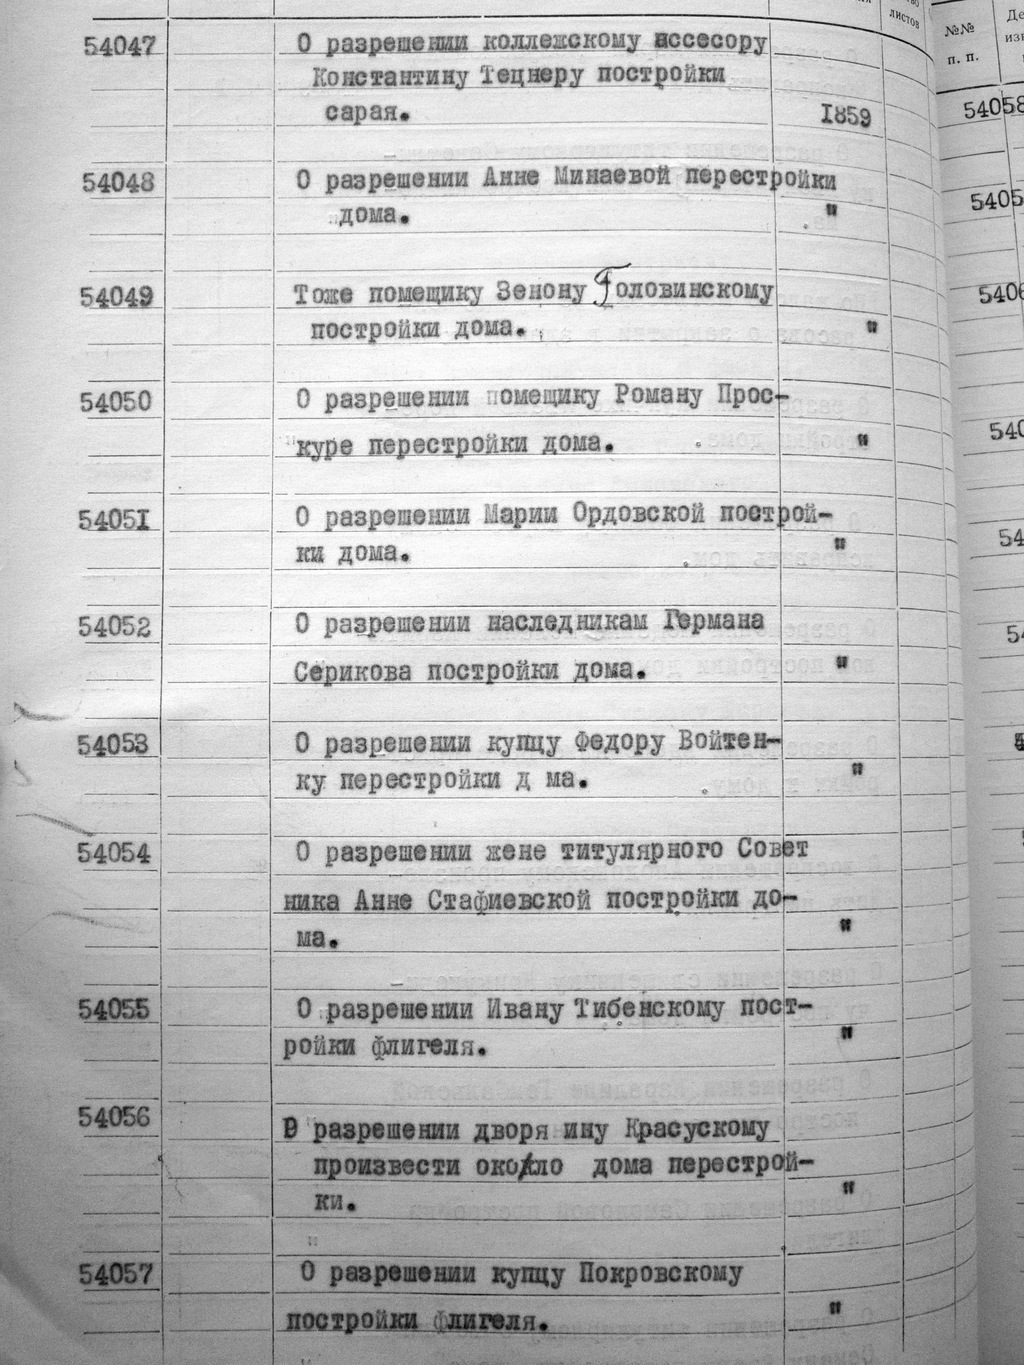 листов
№№
п. п.
54047 О разрешении коллежскому ассесору
Константину Тецнеру постройки
сарая. 1859
54048 О разрешении Анне Минаевой перестройки
дома. "
54049 Тоже помещику Зенону Головинскому
постройки дома. "
54050 О разрешении помещику Роману Прос-
куре перестройки дома. "
54051 О разрешении Марии Ордовской построй-
ки дома. "
54052 О разрешении наследникам Германа
Серикова постройки дома. "
54053 О разрешении купцу Федору Войтен-
ку перестройки д ма. "
54054 О разрешении жене титулярного Совет
ника Анне Стафиевской постройки до-
ма. "
54055 О разрешении Ивану Тибенскому пост-
ройки флигеля. "
54056 О разрешении дворя ину Красускому
произвести около дома перестрой-
ки. "
54057 О разрешении купцу Покровскому
постройки флигеля. "
54058